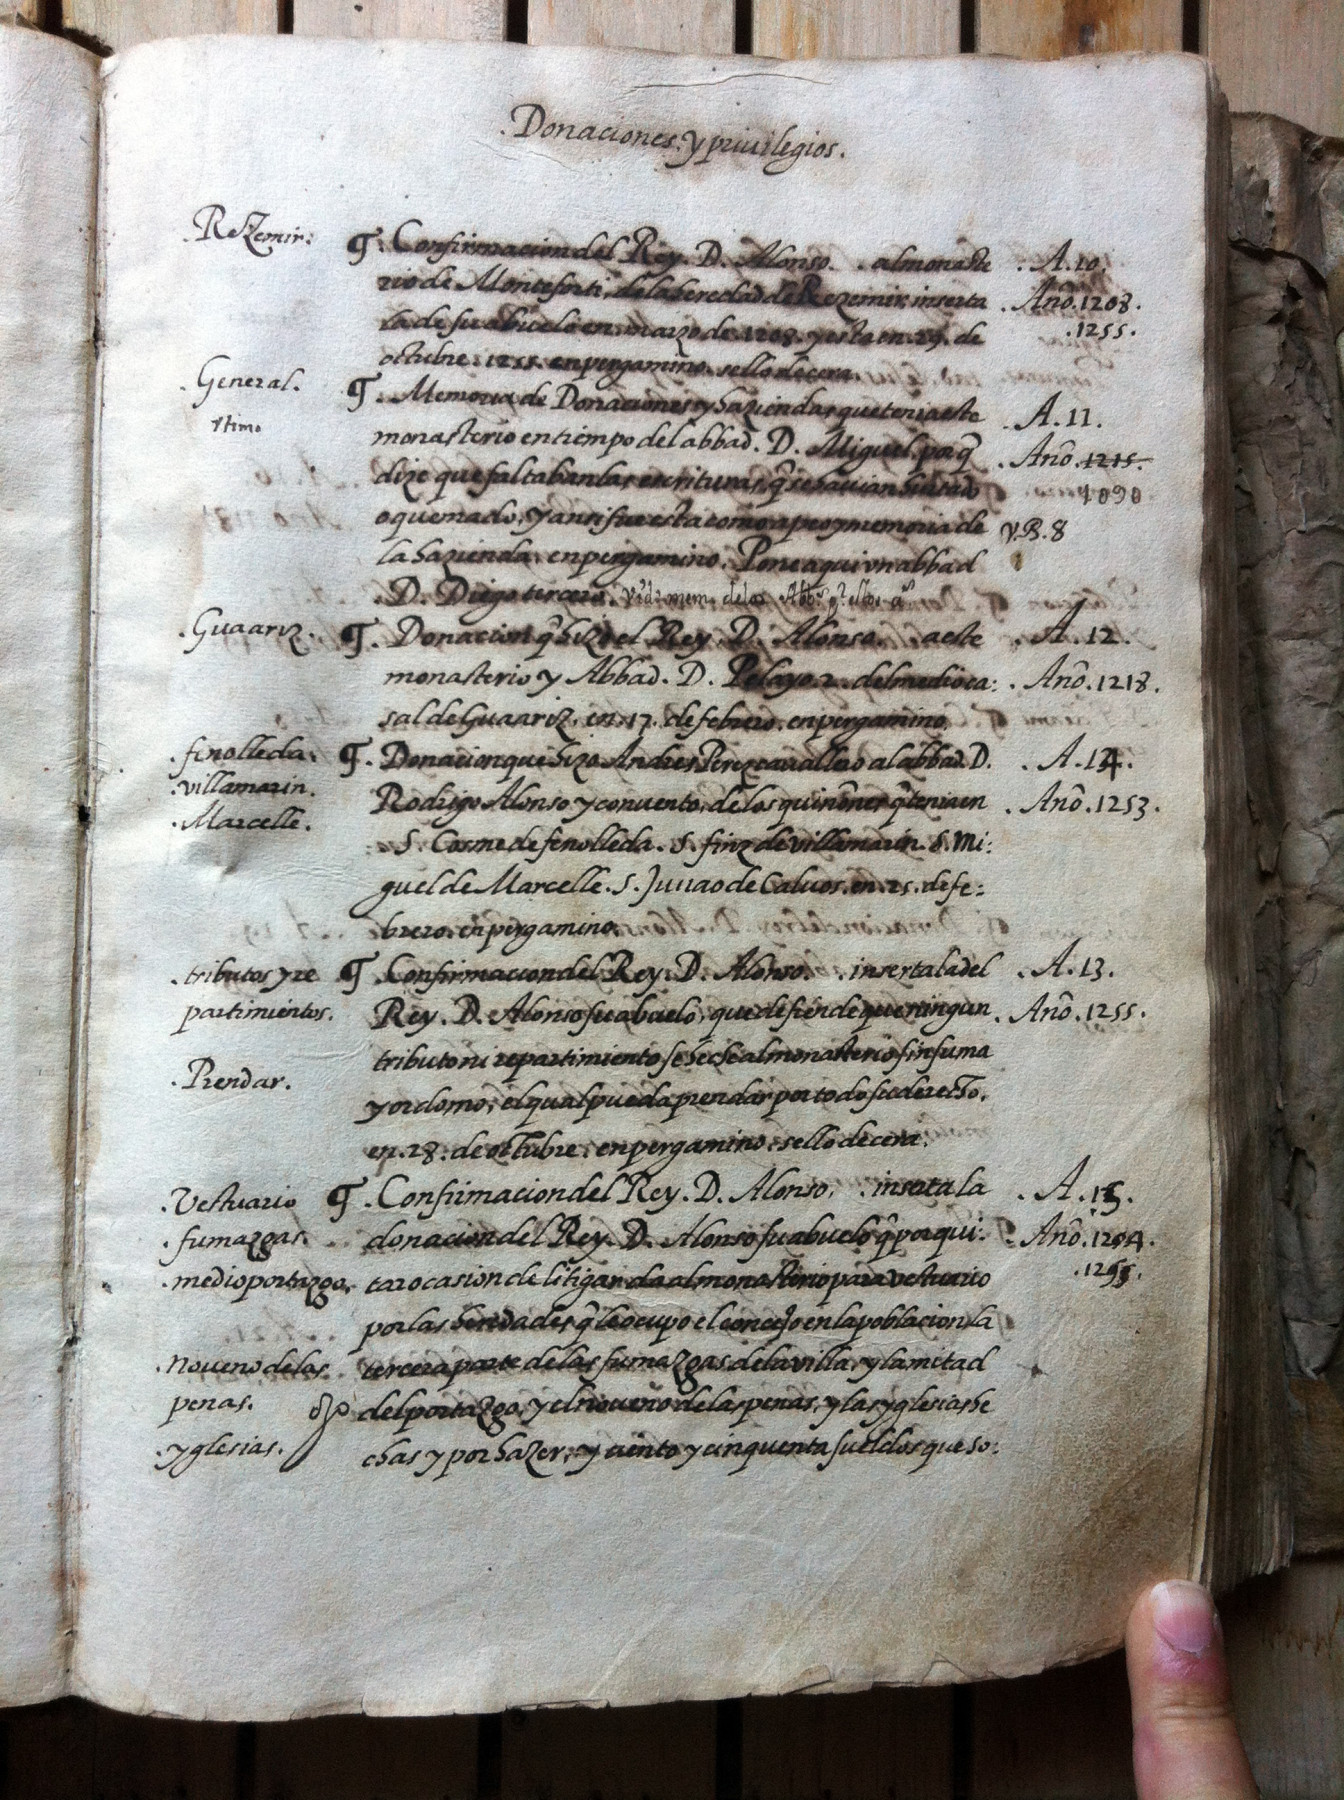 .Donaciones. y priuilegios.
.ReZemir.
¶. Confirmacion del Rey. D. Alonso. . al monaste
. A. 10.
rio de Monteforti, de la heredad de Rezemir, inserta
. Año. 1208.
la de su abuelo en. marzo de. 1208. y esta en. 29. de
.1255.
octubre. 1255. en pergamino. sello de cera.
.General.
¶. Memoria de Donaciones y hazienda, que tenia este
. A. 11.
monasterio en tiempo del abbad. D. Miguel. porq̃
. Año. 1215.
dize que faltaban las escrituras, q̃ se hauian hurtado
1090
o quemado, y ansi fue esta como apeo y memoria de
v. B. 8
la hazienda. en pergamino. Pone aqui vn abbad
.D. Diego tercero.
.Guaariz.
¶. Donacion q̃ hizo el Rey. D. Alonso. a este
. A. 12.
monasterio y Abbad. D. Pelayo. 2. del medio ca:
. Año. 1218.
sal de Guaariz. en. 17. de febrero. en pergamino.
.finolleda.
¶. Donacion que hizo Andres Perez cauallero al abbad. D.
. A. 14.
.villamarin.
Rodrigo Alonso y conuento, de los quiñones q̃ tenia en
. Año. 1253.
.Marcelle.
.S. Cosme de fenolleda. S. finz de villamarin. S. Mi:
guel de Marcelle. S. Juuao de Caluos. en. 25. de fe:
brero. en pergamino.
.tributos y re
¶. Confirmacion del Rey. D. Alonso. . inserta la del
. A. 13.
partimientos.
Rey. D. Alonso su abuelo, que defiende que ningun
. Año. 1255.
tributo ni repartimiento se heche al monasterio sin su ma
.Prendar.
yordomo, el qual pueda prendar por todo su derecho.
en. 28. de octubre. en pergamino. sello de cera.
.Vestuario
¶. Confirmacion del Rey. D. Alonso. . inserta la
. A. 15.
.fumazgas.
donacion del Rey. D. Alonso su abuelo q̃ por qui:
. Año. 1204.
.medio portazgo.
tar ocasion de litigar da al monasterio para vestuario
.1255.
por las heredades q̃ le ocupo el concejo en la poblacion la
.noueno de las
tercera parte de las fumazgas de la villa, y la mitad
penas.
del portazgo, y el noueno de las penas, y las yglesias he
.yglesias.
chas y por hazer, y ciento y cinquenta sueldos que so: